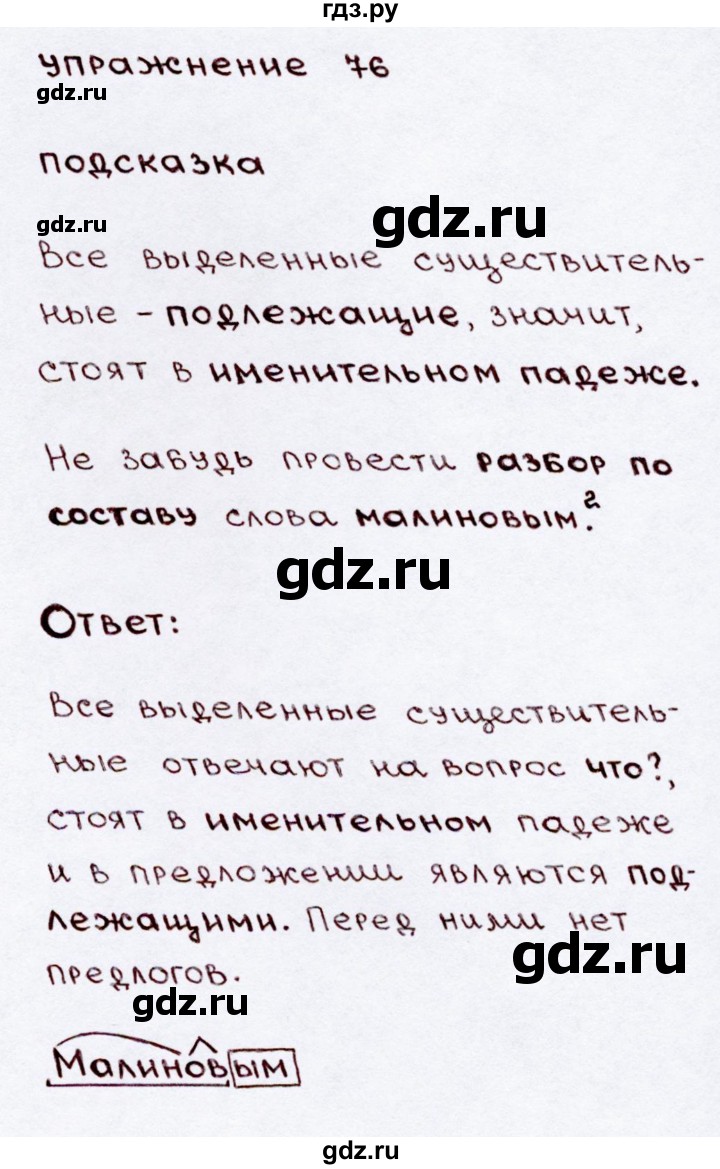 гдз.ру
упражнение 76
gdz.ru
подсказка
gdz.ru
gdz.ru
Все выделенные существитель-
ные - подлежащие, значит,
стоят в именительном падеже.
Не забудь провести разбор по
составу слова малиновым.²
gdz.ru
Ответ:
Все выделенные существитель-
ные отвечают на вопрос что?,
стоят в именительном падеже
и в предложении являются под-
лежащими. Перед ними нет
gdz.ru
предлогов.
gdz.ru
Малиновым
gdz.ru